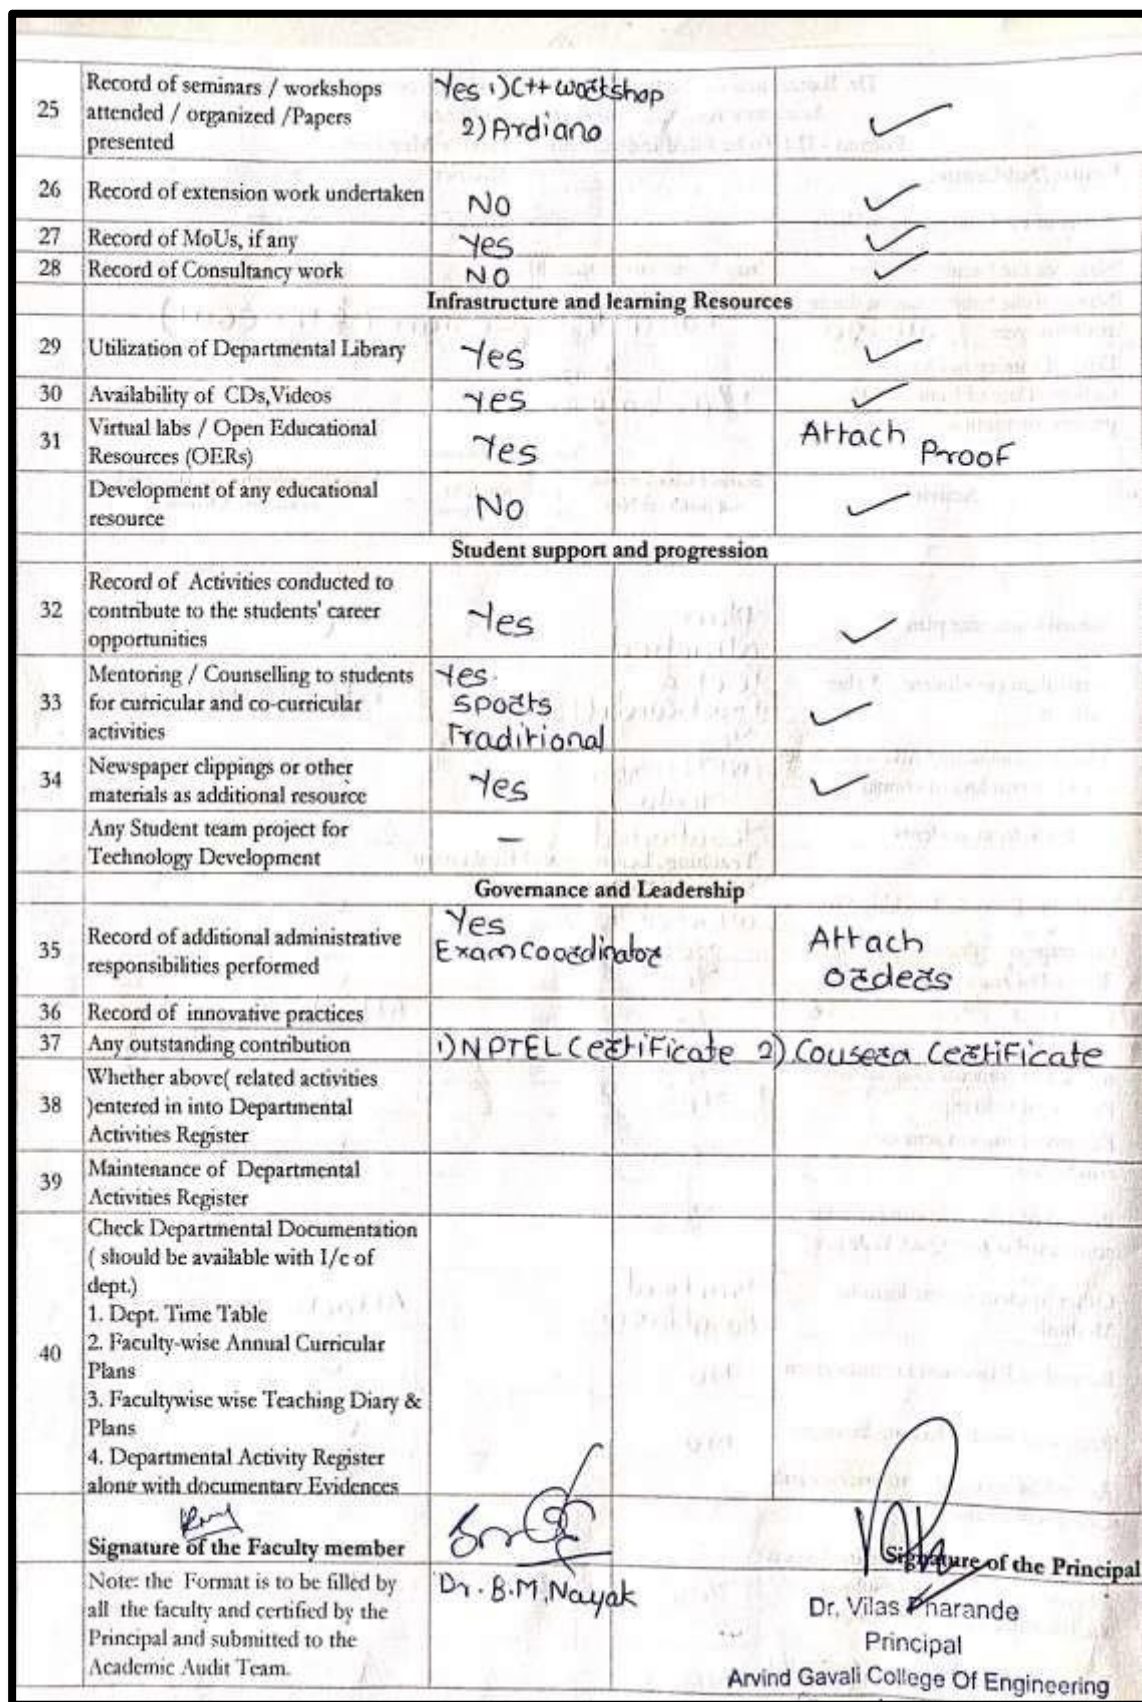 25 Record of seminars / workshops Yes 1) C++ workshop
attended / organized /Papers 2) Ardiano
presented
26 Record of extension work undertaken NO
27 Record of MoUs, if any Yes
28 Record of Consultancy work NO
Infrastructure and learning Resources
29 Utilization of Departmental Library Yes
30 Availability of CDs,Videos Yes
31 Virtual labs / Open Educational Yes Attach Proof
Resources (OERs)
Development of any educational No
resource
Student support and progression
Record of Activities conducted to
32 contribute to the students' career Yes
opportunities
Mentoring / Counselling to students Yes
33 for curricular and co-curricular sports
activities Traditional
34 Newspaper clippings or other Yes
materials as additional resource
Any Student team project for –
Technology Development
Governance and Leadership
35 Record of additional administrative Yes Attach
responsibilities performed Exam Coordinator orders
36 Record of innovative practices
37 Any outstanding contribution 1) NPTEL Certificate 2) Cousera Certificate
Whether above( related activities
38 )entered in into Departmental
Activities Register
39 Maintenance of Departmental
Activities Register
Check Departmental Documentation
( should be available with I/c of
dept.)
1. Dept. Time Table
2. Faculty-wise Annual Curricular
40 Plans
3. Facultywise wise Teaching Diary &
Plans
4. Departmental Activity Register
along with documentary Evidences
Signature of the Faculty member Signature of the Principal
Note: the Format is to be filled by Dr. B.M. Nayak
all the faculty and certified by the Dr. Vilas Pharande
Principal and submitted to the Principal
Academic Audit Team. Arvind Gavali College Of Engineering